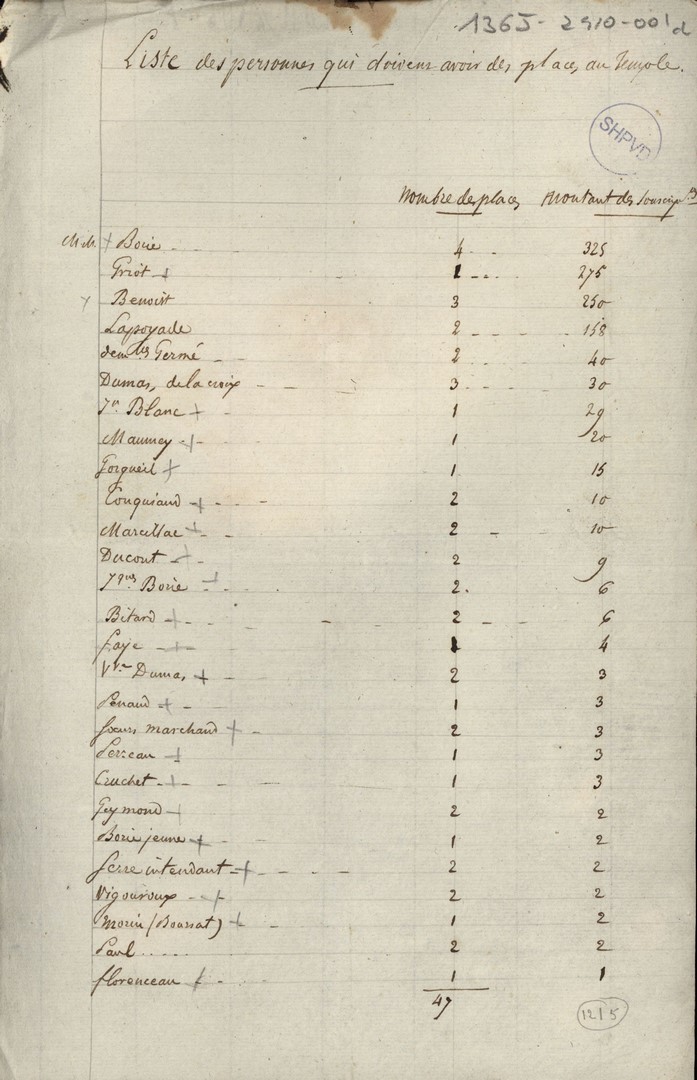 136J - 2910 - 001 d
Liste des personnes qui doivent avoir des places au Temple.
SHPVD
Nombre de places Montant des souscrip.ns
M.M. + Borie 4 325
Griot + 1 275
Benoist 3 250
Lapoyade 2 158
dem.lles Germé 2 40
Dumas, de la croix 3 30
Jn Blanc + 1 29
Maumey + 1 20
Gorgueil + 1 15
Touquiaud + 2 10
Marcillac + 2 10
Ducout + 2 9
Jques Borie + 2 6
Bitard + 2 6
faje + 1 4
Vve Dumas + 2 3
Penaud + 1 3
soeurs marchand + 2 3
Perreau + 1 3
Cruchet + 1 3
Geymond + 2 2
Borie jeune + 1 2
serre intendant + 2 2
Vigouroux + 2 2
Morin (Boussat) + 1 2
Paul 2 2
florenceau + 1 1
47 1215